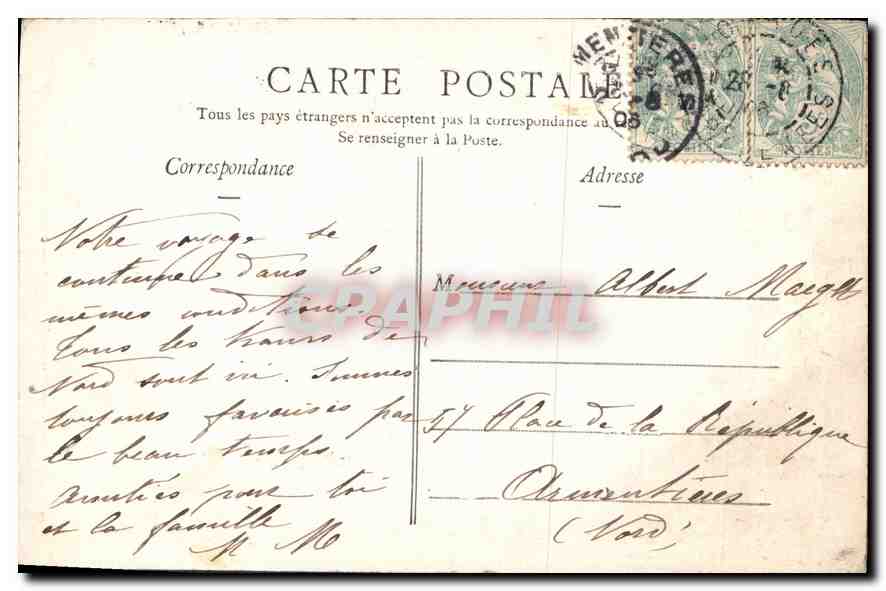 CARTE POSTALE
Tous les pays étrangers n'acceptent pas la correspondance au
Se renseigner à la Poste.
Correspondance
Notre voyage se
continue dans les
mêmes conditions.
Tous les trains de
Nord sont ici. Sommes
toujours favorisés par
le beau temps.
Amitiés pour toi
et la famille
M M
Adresse
Monsieur Albert Maeght
57 Place de la République
Armentières
(Nord)
CPAPHIL